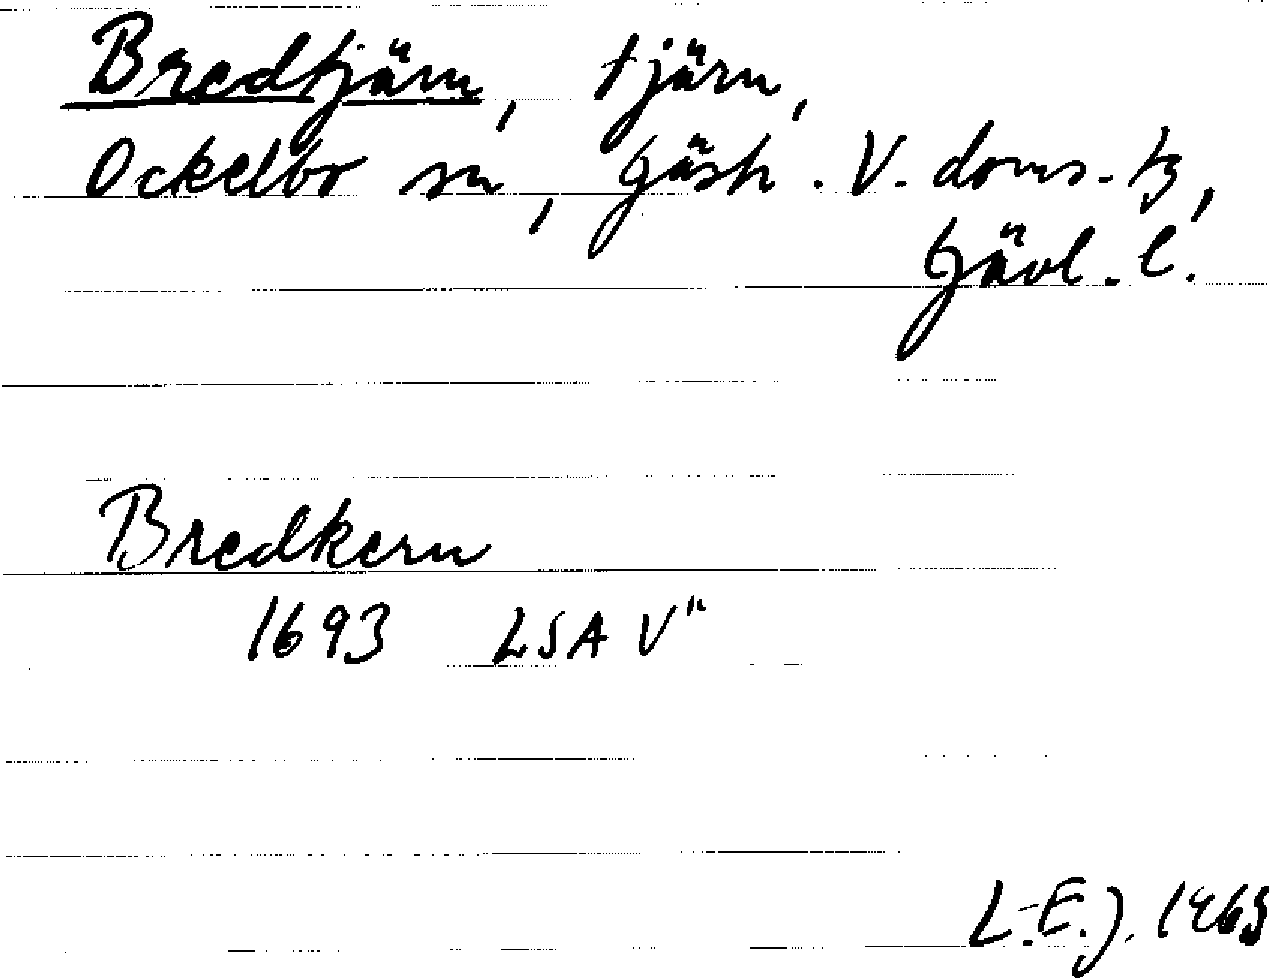 Bredtjärn, tjärn,
Ockelbo sn, Gästr. V. doms-tg,
Gävl. l.
Bredkern
1693 LSA V"
L.E.J. 1965